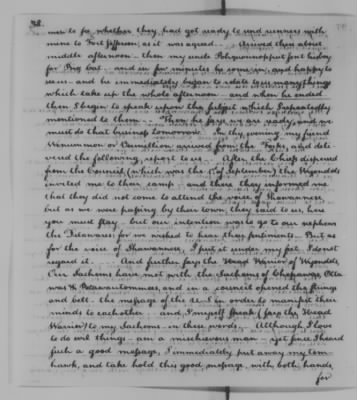 28.
men to see, whether they had got ready to send runners with
mine to Fort Jefferson, as it was agreed. Arrived then about
middle afternoon then my uncle Pohquonnoppeet sent his boy
for Big Cat and in few minutes he come in and happy to
see us and he immediately began to relate to us many things
which take up the whole afternoon and when he ended
then I begin to speak upon the subject which I repeatedly
mentioned to them. Then he says we are ready and we
must do that business tomorrow. In the evening my friend
or Counsellor arrived from the Forks, and deli-
vered the following report to us. After the Chiefs dispersed
from the Council (which was the of September) the Wyondots
invited me to their camp and there they informed me
that they did not come to attend the voice of Shawanese
but as we were passing by their town, they said to us, here
you must stay but our intention was to go to our nephews
the Delawares for we wished to hear their sentiments. But as
for the voice of Shawannese, I put it under my feet. I do not
regard it. And further says the Head Warrior of Wyondots,
Our Sachems have met with the Sachems of Chepawas, Otta
was & Potawautommees, and in a council opened the strings
and belt the message of the U.S in order to manifest their
minds to each other and, I myself speak (says the Head
Warrior) to my Sachems in these words, Although I love
to do evil things am a mischievous man yet since I heard
such a good message, I immediately put away my tom
hawk, and take hold this good message, with both hands,
for